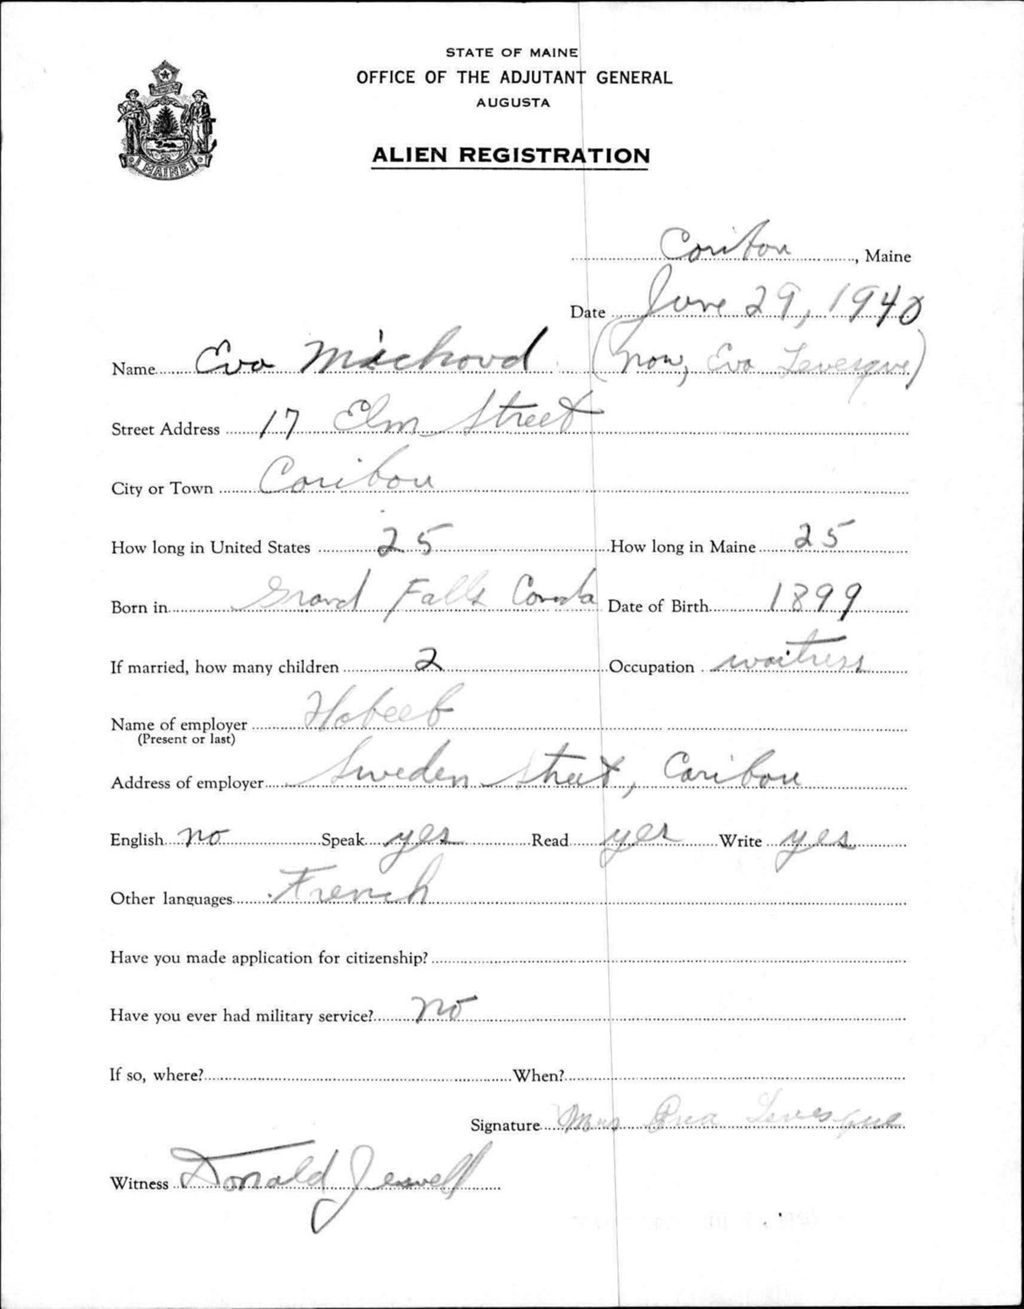 STATE OF MAINE
OFFICE OF THE ADJUTANT GENERAL
AUGUSTA
ALIEN REGISTRATION
MAINE
Caribou, Maine
Date June 29, 1940
Name Eva Michaud (now, Eva Levesque)
Street Address 17 Elm Street
City or Town Caribou
How long in United States 25 How long in Maine 25
Born in Grand Falls Canada Date of Birth 1899
If married, how many children 2 Occupation waitress
Name of employer Habeeb
(Present or last)
Address of employer Sweden Street, Caribou
English no Speak yes Read yes Write yes
Other languages French
Have you made application for citizenship?
Have you ever had military service? no
If so, where? When?
Signature Mrs Levesque
Witness Donald Jewell